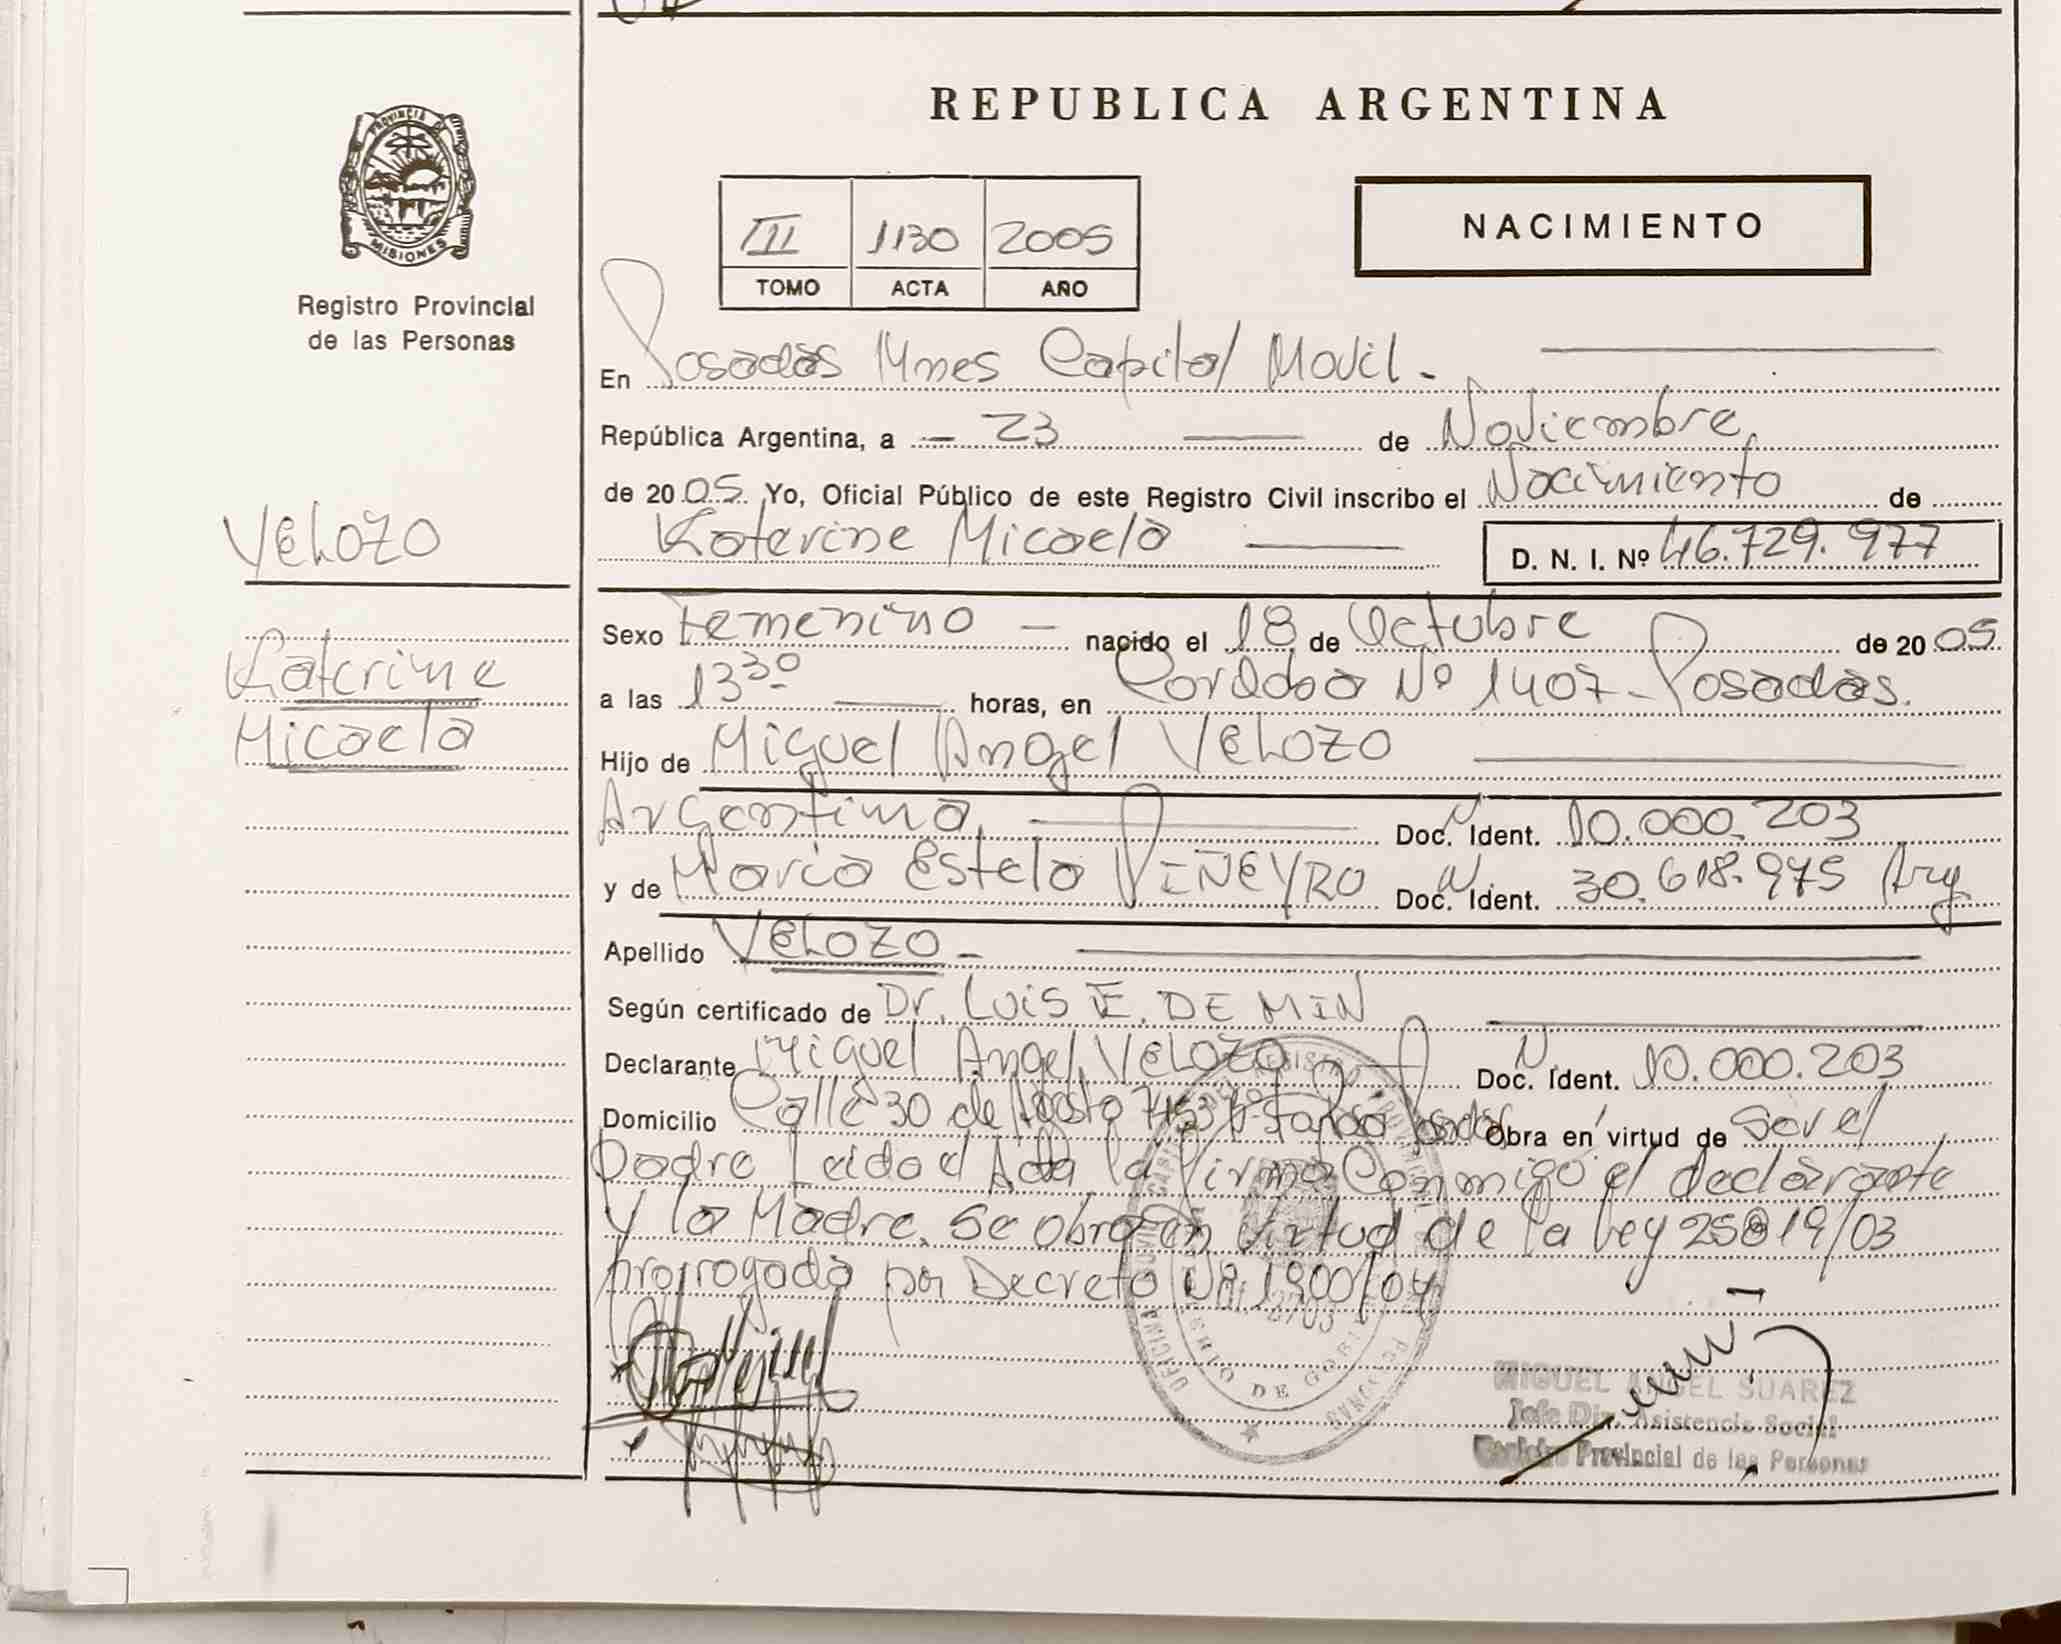 REPUBLICA ARGENTINA
PROVINCIA DE
MISIONES
Registro Provincial
de las Personas
III 1130 2005
TOMO ACTA AÑO
NACIMIENTO
En Posadas Mnes Capital Movil -
República Argentina, a - 23 de Noviembre
de 2005 Yo, Oficial Público de este Registro Civil inscribo el Nacimiento de
Katerine Micaela D. N. I. Nº 46.729.977
VELOZO
Katerine
Micaela
Sexo Femenino - nacido el 18 de Octubre de 2005
a las 13 30 horas, en Cordoba Nº 1407 - Posadas.
Hijo de Miguel Angel VELOZO
Argentina Doc. N. Ident. 10.000.203
y de Maria Estela PIÑEYRO Doc. N. Ident. 30.618.975 Arg
Apellido VELOZO -
Según certificado de Dr. LUIS E. DE MIN
Declarante Miguel Angel VELOZO Doc. N. Ident. 10.000.203
Domicilio Calle 30 de Agosto Posadas Obra en virtud de ser el
Padre Leido el Acta la firma Conmigo el declarante
y la Madre. Se obra en virtud de la ley 25819/03
prorrogada por Decreto Nº 1900/04
MIGUEL ANGEL SUAREZ
Jefe Asistencia Social
Provincial de las Personas